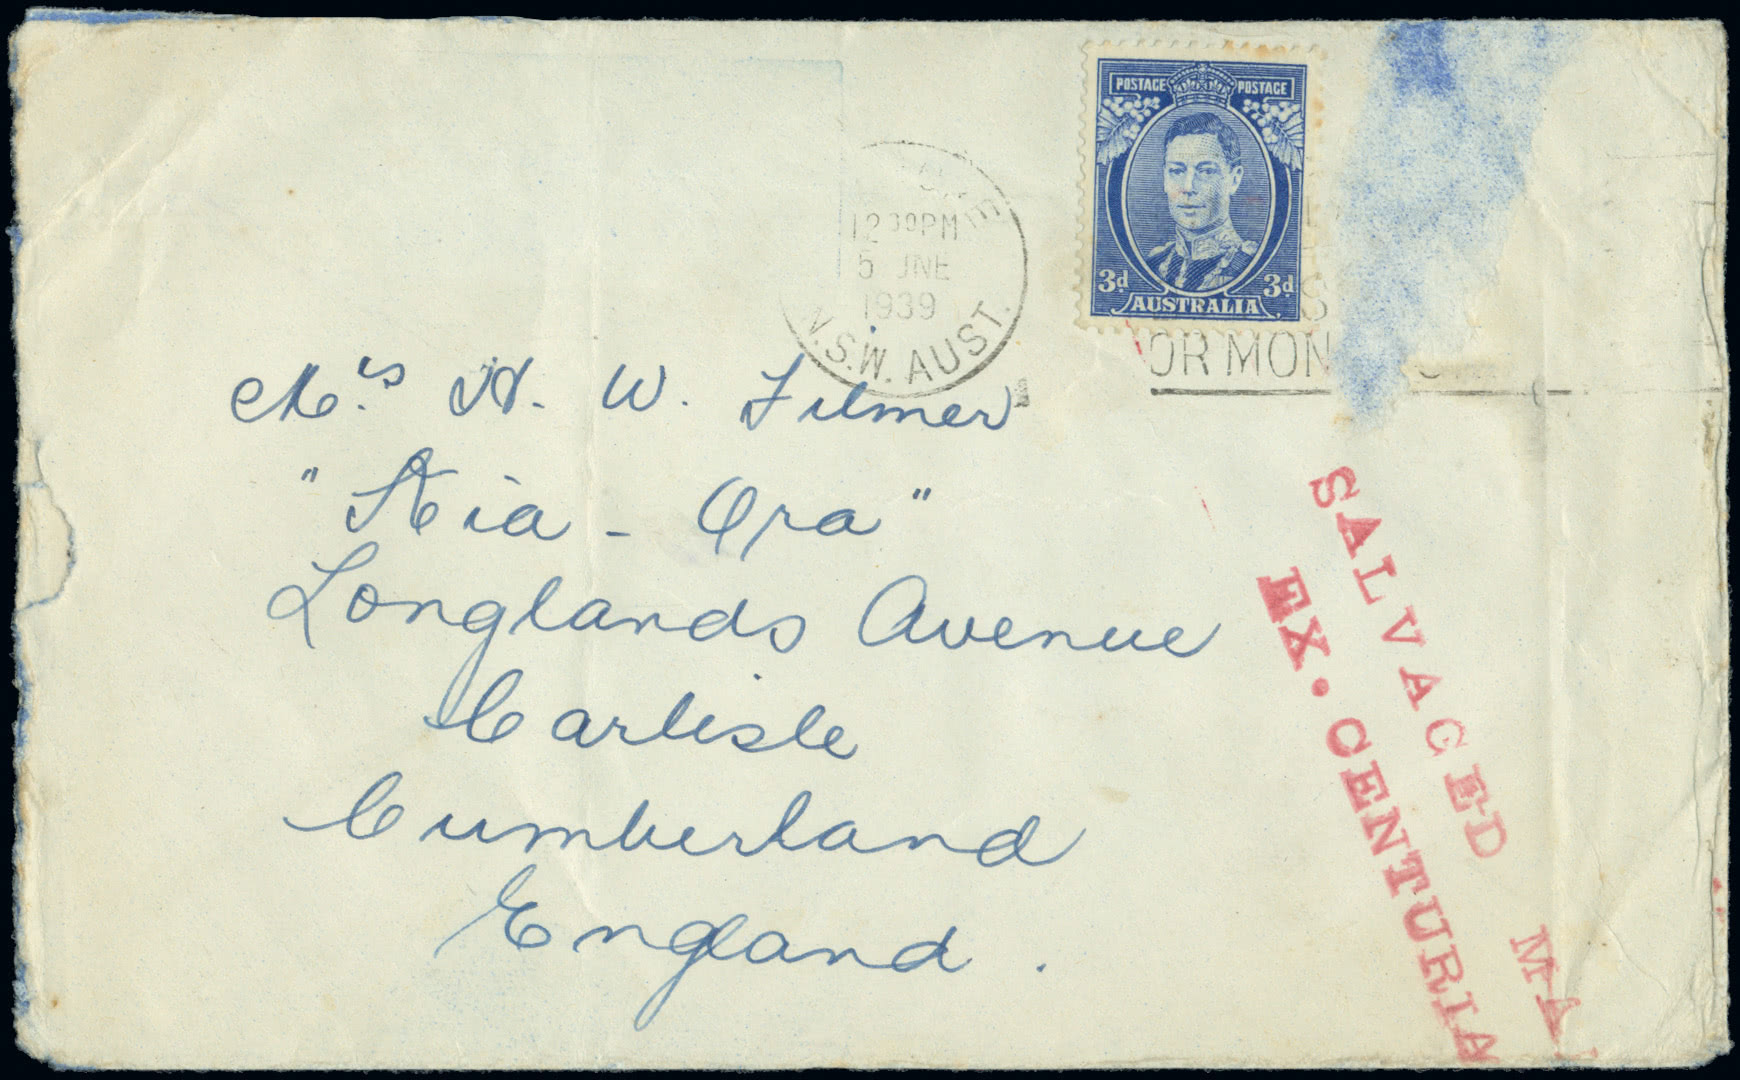 POSTAGE POSTAGE
3d 3d
AUSTRALIA
12 30PM
5 JNE
1939
N.S.W. AUST.
OR MON
Mrs H. W. Filmer
"Kia - Ora"
Longlands Avenue
Carlisle
Cumberland
England.
SALVAGED MA
EX. CENTURIA